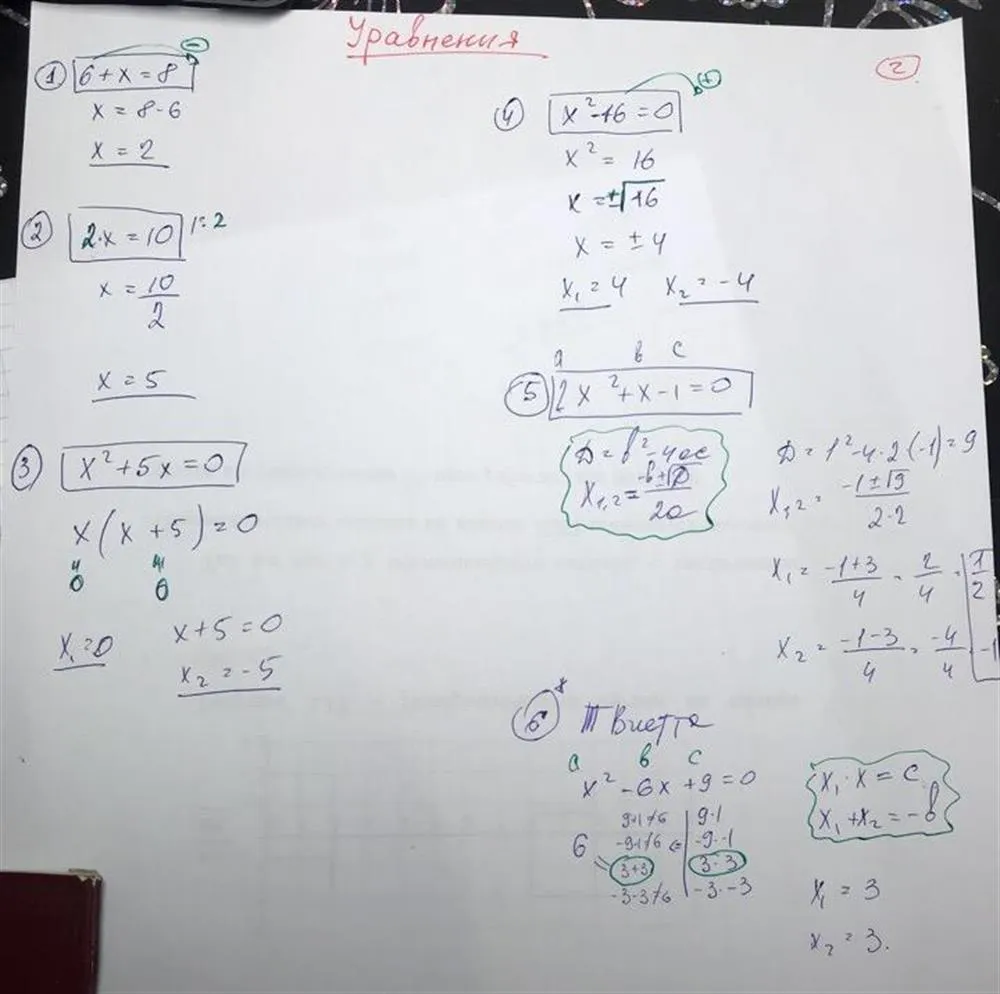 Уравнения
2
1 6 + x = 8 -
x = 8 - 6
x = 2
2 2·x = 10 |: 2
x = 10/2
x = 5
3 x² + 5x = 0
x(x + 5) = 0
0 0
x₁ = 0 x + 5 = 0
x₂ = -5
4 x² - 16 = 0 +
x² = 16
x = ±√16
x = ± 4
x₁ = 4 x₂ = -4
a b c
5 2x² + x - 1 = 0
D = b² - 4ac
x₁,₂ = (-b ± √D)/2a
D = 1² - 4·2(-1) = 9
x₁,₂ = (-1 ± √9)/(2·2)
x₁ = (-1+3)/4 = 2/4 = 1/2
x₂ = (-1-3)/4 = -4/4 = -1
6* Т Виетта
a b c
x² - 6x + 9 = 0
9+1≠6 9·1
-9-1≠6 -9·-1
6 3+3 3·3
-3-3≠6 -3·-3
x₁·x = c
x₁ + x₂ = -b
x₁ = 3
x₂ = 3.